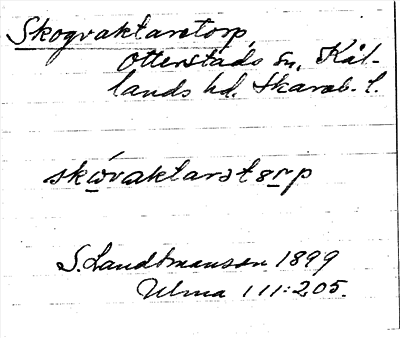 Skogvaktaretorp,
Otterstads sn, Kål-
lands hd. Skarab. l.
skωvaktarət8rp
S. Landtmanson 1899
Ulma 111:205.